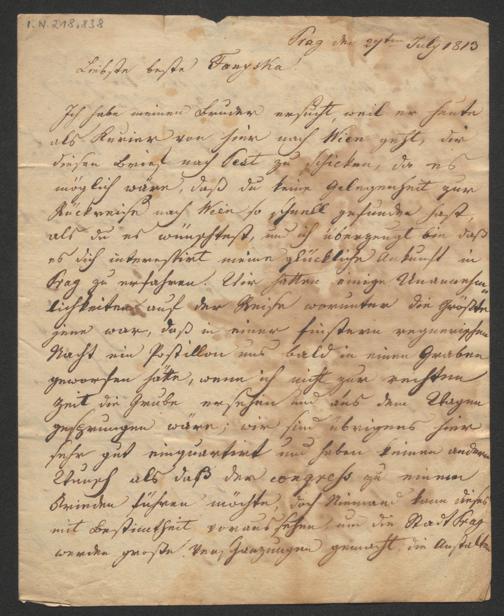 I.N. 218.838
Prag den 29ten July 1813
Liebste beste Fanyska!
Ich habe meinen Bruder ersucht, weil er heute
als Kurier von hier nach Wien geht, dir
diesen Brief nach Pest zu schicken, da es
möglich wäre, daß du keine Gelegenheit zur
Rückreise nach Wien so schnell gefunden hast,
als du es wünschtest, und ich überzeugt bin daß
es dich interessirt meine glückliche Ankunft in
Prag zu erfahren. Wir hatten einige Unannehm-
lichkeiten auf der Reise worunter die Größte
jene war, daß in einer finstern regnerischen
Nacht ein Postillon uns bald in einen Graben
geworfen hätte, wenn ich nicht zur rechten
Zeit die Grube ersehen und aus dem Wagen
gesprungen wäre; wir sind übrigens hier
sehr gut einquartirt und haben keinen andern
Wunsch als daß der Congreß zu einem
Frieden führen möchte, doch Niemand kann dieses
mit Bestimtheit voraussehen, um die Stadt Prag
werden große Verschanzungen gemacht, die Anstalten